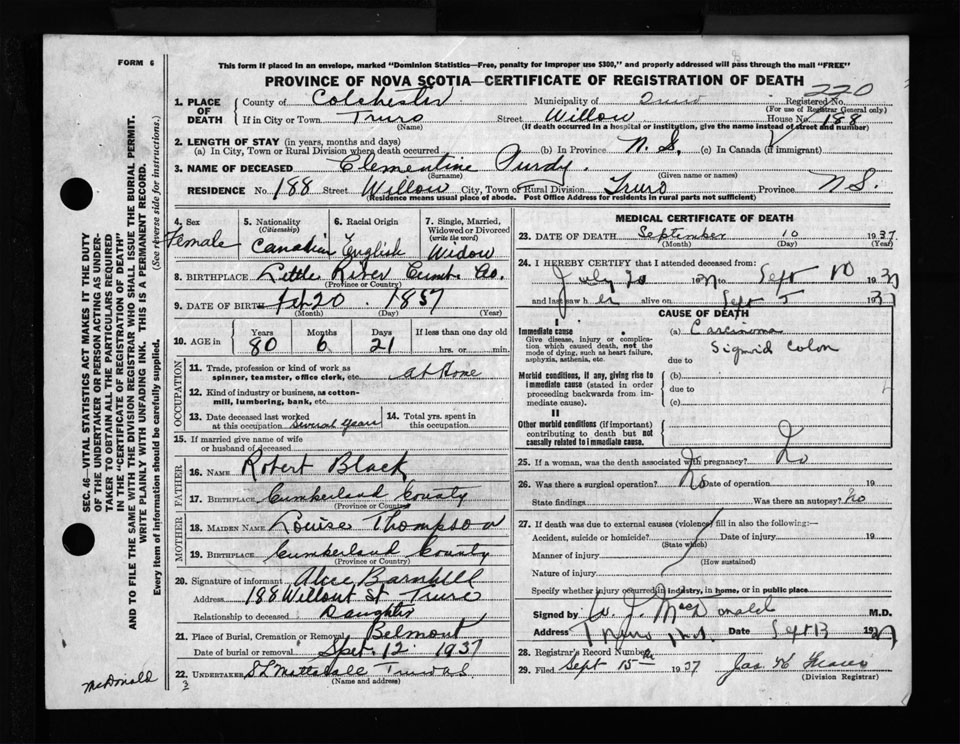 FORM 6
This form if placed in an envelope, marked "Dominion Statistics—Free, penalty for improper use $300," and properly addressed will pass through the mail "FREE"
PROVINCE OF NOVA SCOTIA—CERTIFICATE OF REGISTRATION OF DEATH
220
1. PLACE OF DEATH County of Colchester Municipality of Truro Registered No.
(For use of Registrar General only)
If in City or Town Truro Street Willow House No. 188
(Name) (If death occurred in a hospital or institution, give the name instead of street and number)
2. LENGTH OF STAY (in years, months and days)
(a) In City, Town or Rural Division where death occurred (b) In Province N. S. (c) In Canada (if immigrant)
3. NAME OF DECEASED Clementine Purdy.
(Surname) (Given name or names)
RESIDENCE No. 188 Street Willow City, Town or Rural Division Truro Province N S.
(Residence means usual place of abode. Post Office Address for residents in rural parts not sufficient)
4. Sex Female
5. Nationality (Citizenship) Canadian
6. Racial Origin English
7. Single, Married, Widowed or Divorced (write the word) Widow
8. BIRTHPLACE Little River Cumb. Co.
(Province or Country)
9. DATE OF BIRTH Feb 20 . 1857
(Month) (Day) (Year)
10. AGE in Years Months Days If less than one day old
80 6 21 hrs. or min.
OCCUPATION
11. Trade, profession or kind of work as spinner, teamster, office clerk, etc. at Home
12. Kind of industry or business, as cotton-mill, lumbering, bank, etc.
13. Date deceased last worked at this occupation several years
14. Total yrs. spent in this occupation
15. If married give name of wife or husband of deceased
FATHER
16. NAME Robert Black
17. BIRTHPLACE Cumberland County
(Province or Country)
MOTHER
18. MAIDEN NAME Louise Thompson
19. BIRTHPLACE Cumberland County
(Province or Country)
20. Signature of informant Alice Barnhill
Address 188 Willow St Truro
Relationship to deceased Daughter
21. Place of Burial, Cremation or Removal Belmont
Date of burial or removal Spet. 12. 1937
22. UNDERTAKER
(Name and address)
3
MEDICAL CERTIFICATE OF DEATH
23. DATE OF DEATH September 10 1937
(Month) (Day) (Year)
24. I HEREBY CERTIFY that I attended deceased from:
July 20 1937 to Sept 10 1937
and last saw her alive on Sept 5 1937
CAUSE OF DEATH
I
Immediate cause (a) Carcinoma
Give disease, injury or complication which caused death, not the mode of dying, such as heart failure, asphyxia, asthenia, etc.
Sigmoid Colon
due to
Morbid conditions, if any, giving rise to immediate cause (stated in order proceeding backwards from immediate cause).
(b)
due to
(c)
II
Other morbid conditions (if important) contributing to death but not causally related to immediate cause.
25. If a woman, was the death associated with pregnancy? No
26. Was there a surgical operation? No Date of operation 19
State findings Was there an autopsy? No
27. If death was due to external causes (violence) fill in also the following:—
Accident, suicide or homicide? Date of injury 19
(State which)
Manner of injury
(How sustained)
Nature of injury
Specify whether injury occurred in industry, in home, or in public place
Signed by W. J. MacDonald M.D.
Address Truro N.S. Date Sept 13 1937
28. Registrar's Record Number
29. Filed Sept 15th 1937
(Division Registrar)
SEC. 46—VITAL STATISTICS ACT MAKES IT THE DUTY
OF THE UNDERTAKER OR PERSON ACTING AS UNDER-
TAKER TO OBTAIN ALL THE PARTICULARS REQUIRED
IN THE "CERTIFICATE OF REGISTRATION OF DEATH"
AND TO FILE THE SAME WITH THE DIVISION REGISTRAR WHO SHALL ISSUE THE BURIAL PERMIT.
WRITE PLAINLY WITH UNFADING INK. THIS IS A PERMANENT RECORD.
Every item of Information should be carefully supplied. (See reverse side for instructions.)
McDonald